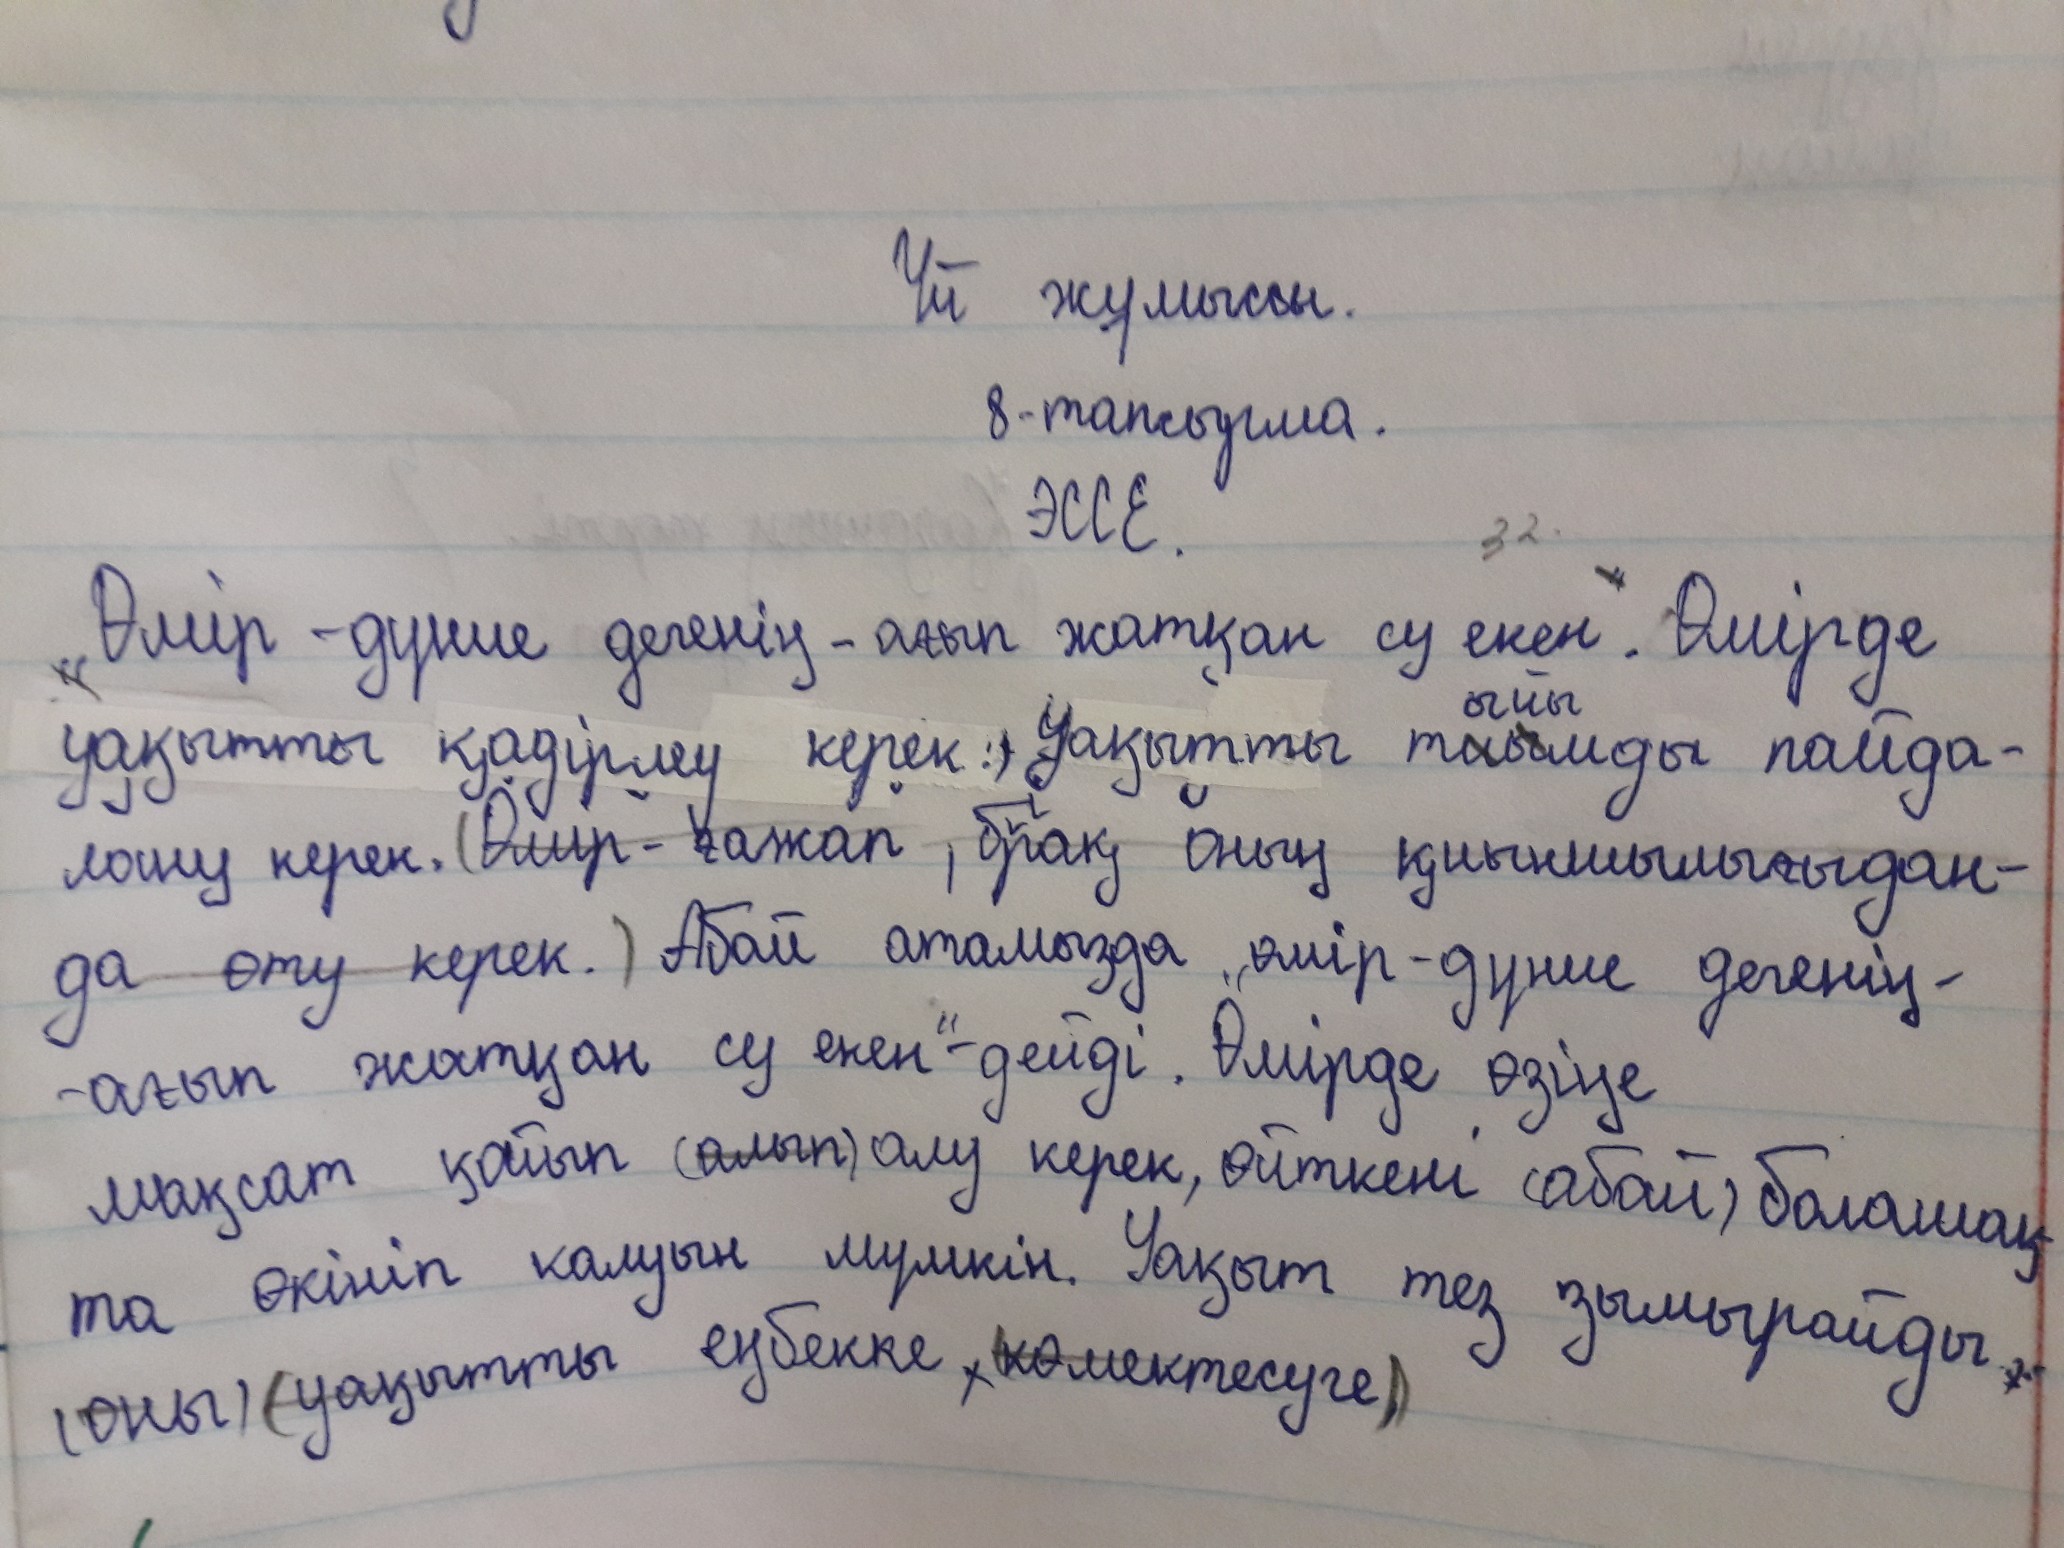 Үй жұмысы.
8-тапсырма.
ЭССЕ.
32.
„Өмір-дүние дегенің-ағып жатқан су екен". Өмірде
уақытты қадірлеу керек. Уақытты тиымды пайда-
ыйы
лану керек. (Өмір-ғажап, бірақ оның қиыншылығыдан-
да өту керек.) Абай атамызда „өмір-дүние дегенің-
-ағып жатқан су екен"-дейді. Өмірде өзіңе
мақсат қойып (алып) алу керек, өйткені (абай) болашақ-
та өкініп калуын мүмкін. Уақыт тез зымырайды.
(оны) (уақытты еңбекке, (көмектесуге))